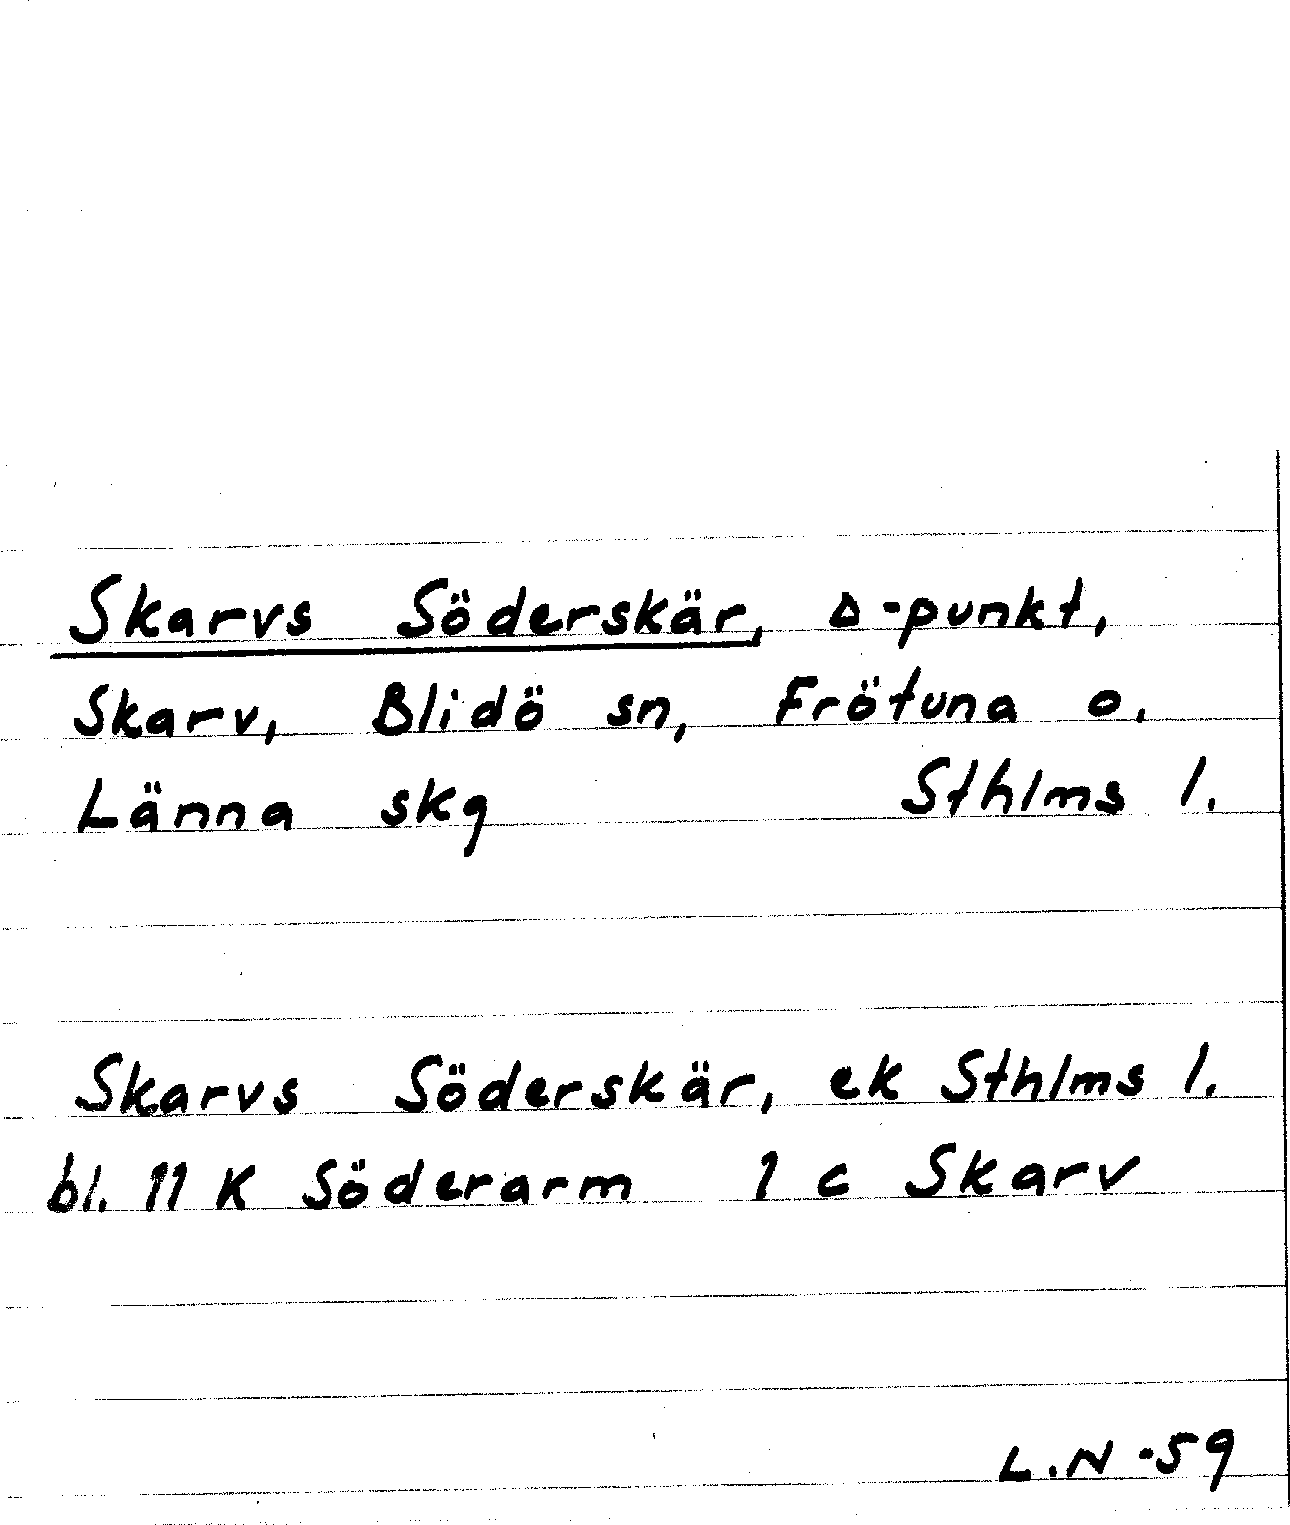 Skarvs Söderskär, Δ-punkt,
Skarv, Blidö sn, Frötuna o.
Länna skg Sthlms l.
Skarvs Söderskär, ek Sthlms l.
bl. 11 K Söderarm 1 c Skarv
L.N -59